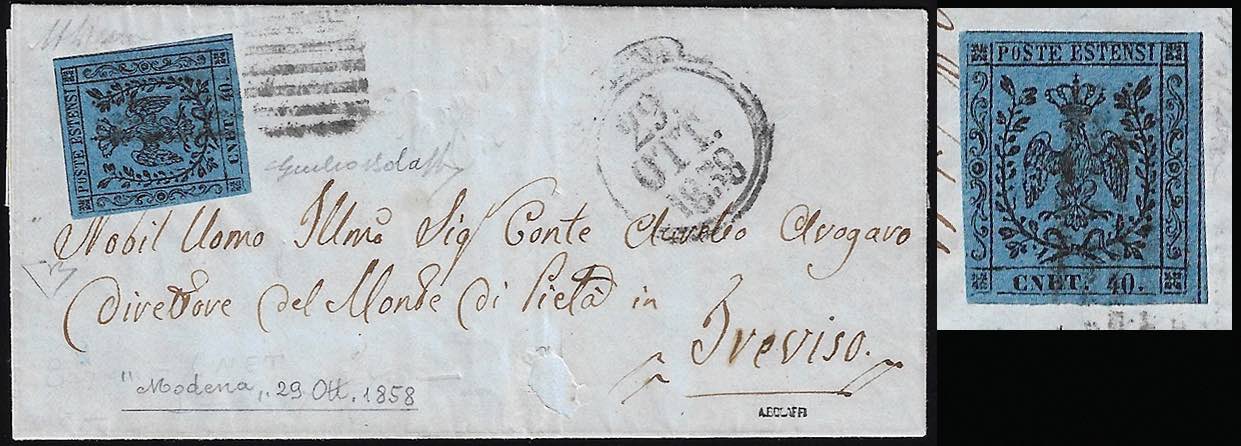 POSTE ESTENSI
CNET. 40.
29.
OTT.
1858
Giulio Bolaffi
Nobil Uomo Illmo Sig Conte Aurelio Avogaro
Direttore del Monte di Pietà in
Treviso.
"Modena„ 29 Ott. 1858
A.BOLAFFI
POSTE ESTENSI
CNET. 40.